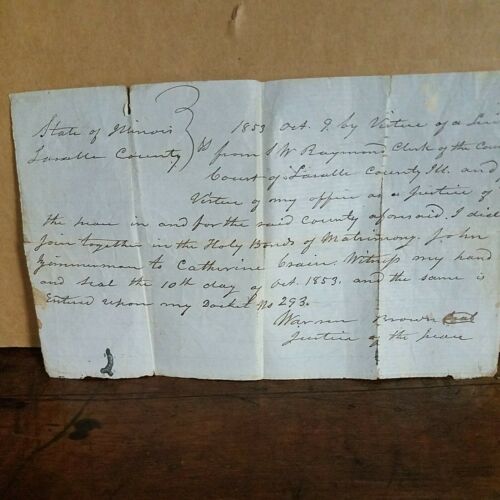 State of Illinois
Lasalle County } ss
1853 Oct. 9. by Virtue of a
from S W Raymond Clerk of the
Court of Lasalle County Ill. and
Virtue of my office as a Justice of
the peace in and for the said County aforesaid. I did
join together in the Holy Bonds of Matrimony. John
Zimmerman to Catherine Crain. Witness my hand
and seal the 10th day of Oct. 1853. and the same is
Entered upon my Docket No 293.
Warren Brown seal
Justice of the peace